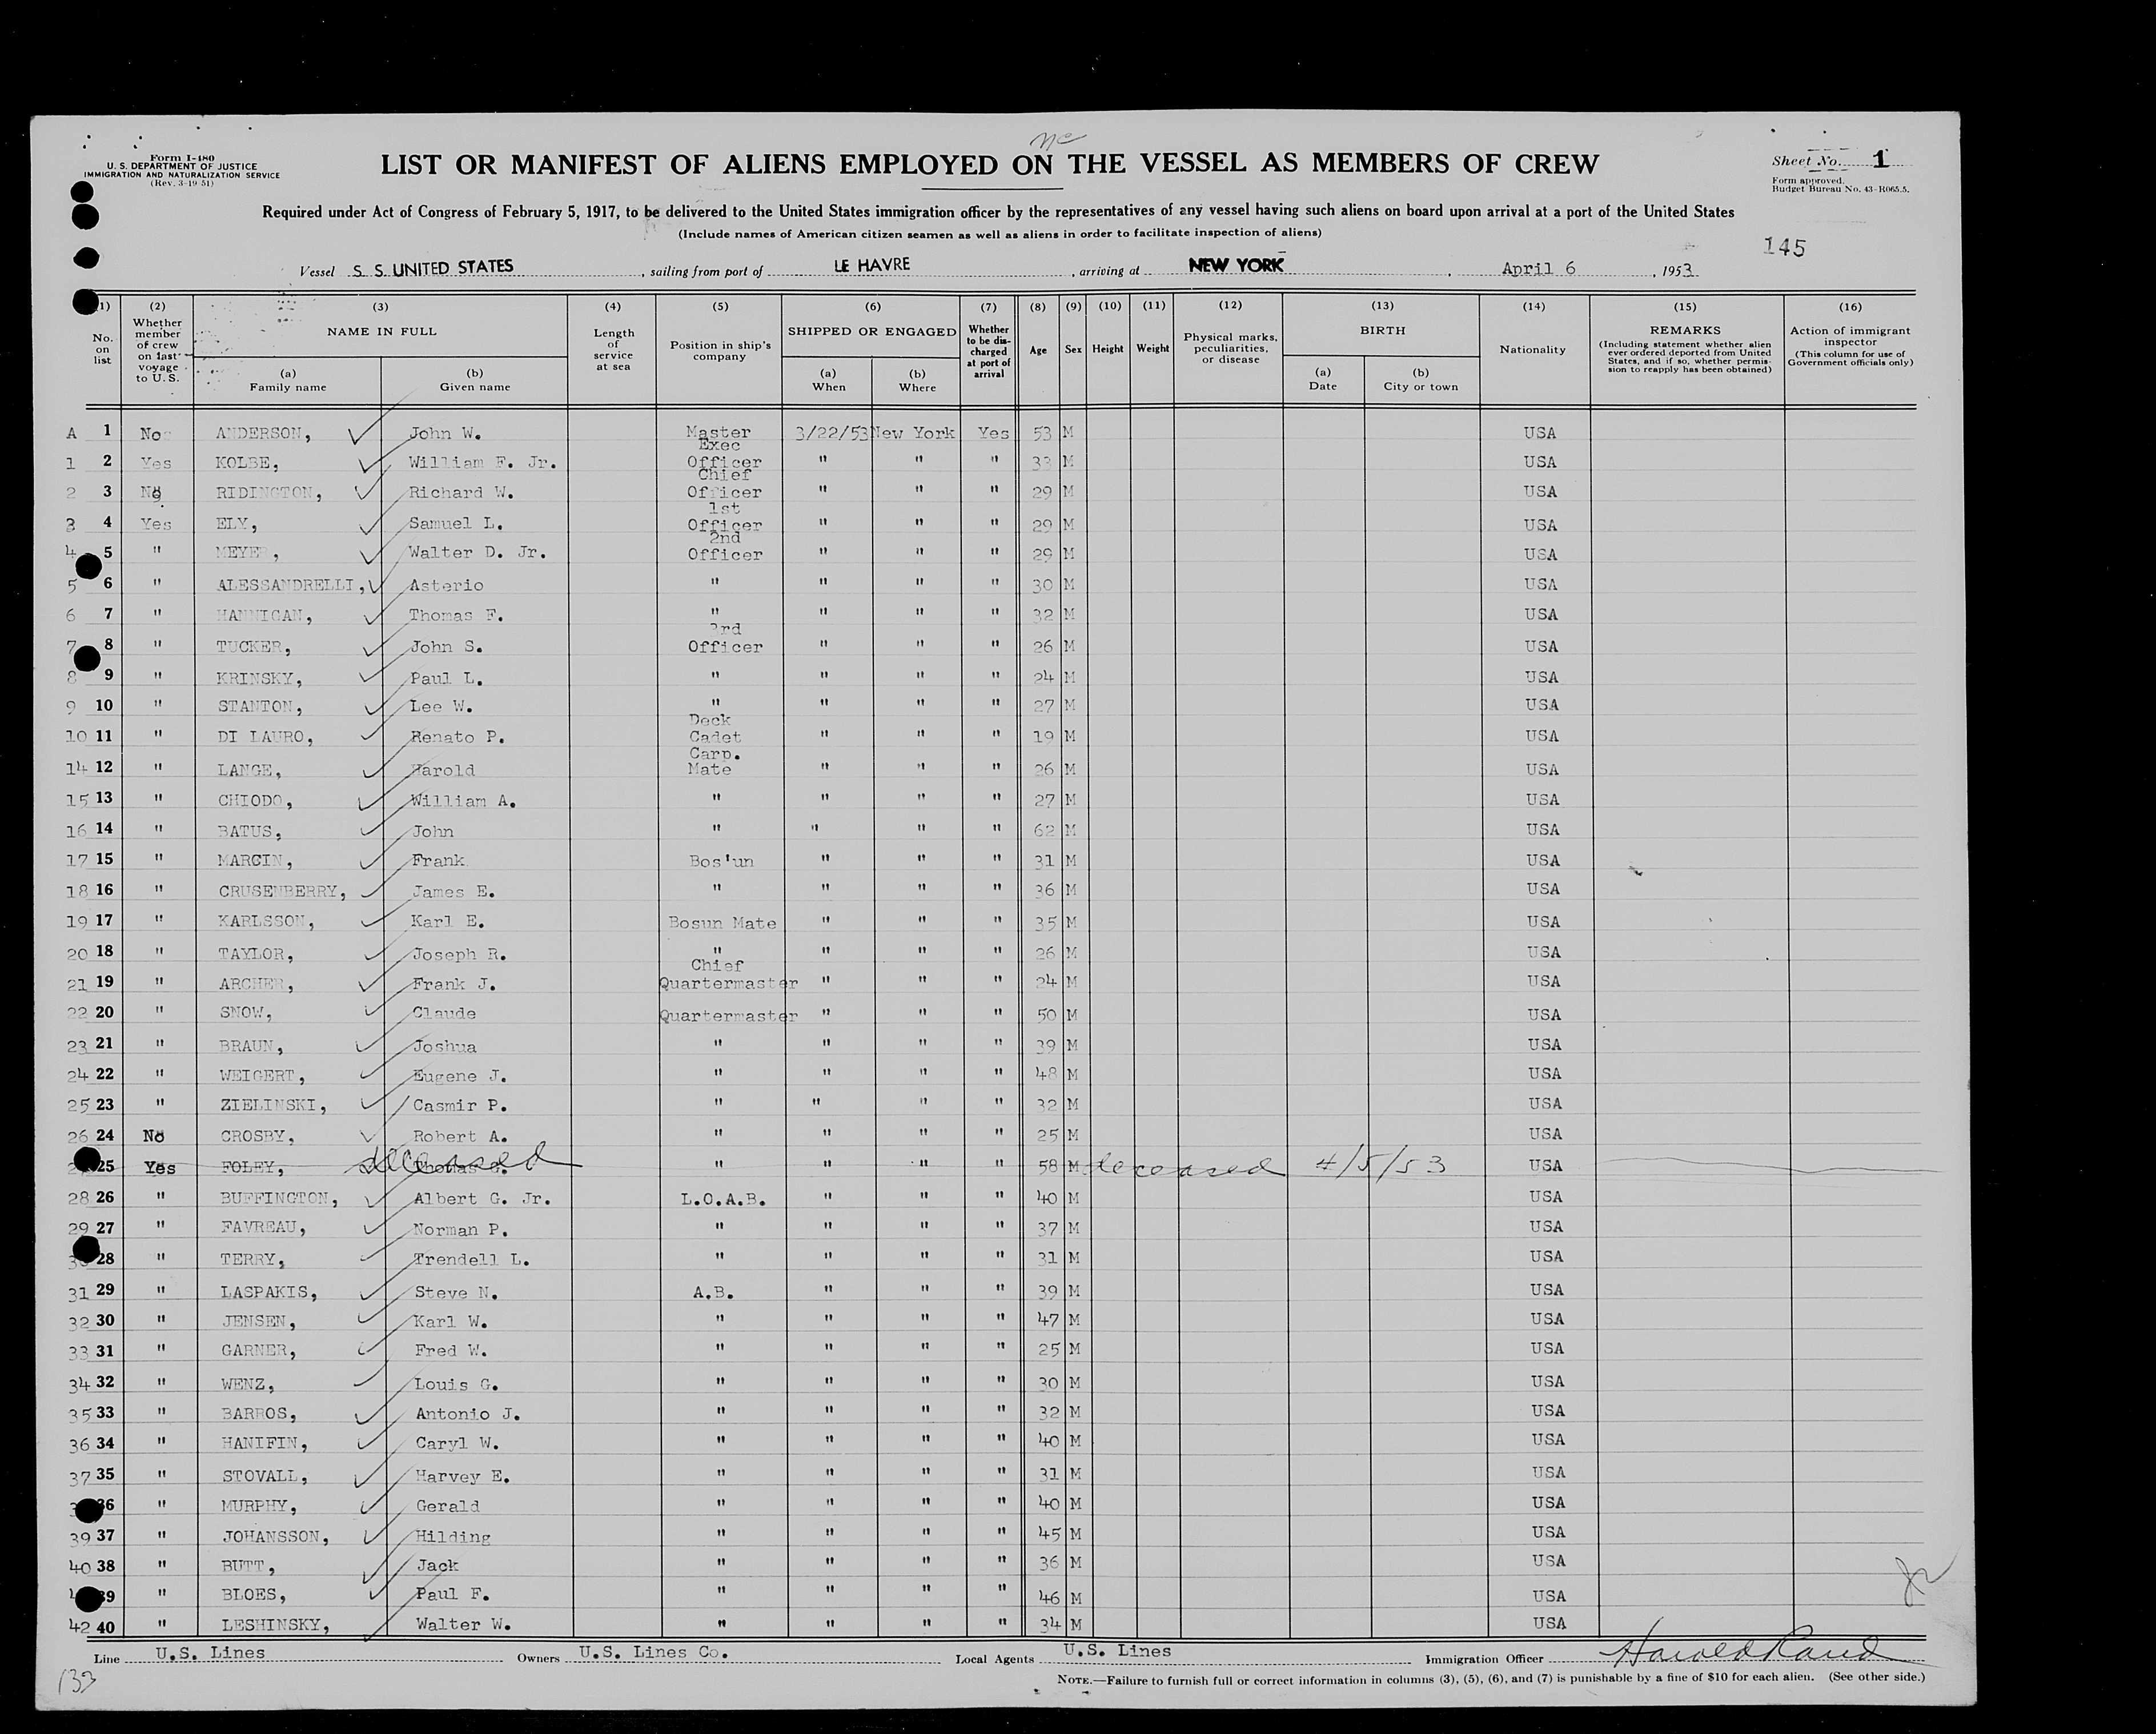 nc
Form I-480
U. S. DEPARTMENT OF JUSTICE
IMMIGRATION AND NATURALIZATION SERVICE
(Rev. 3-19-51)
LIST OR MANIFEST OF ALIENS EMPLOYED ON THE VESSEL AS MEMBERS OF CREW
Sheet No. 1
Form approved.
Budget Bureau No. 43-R065.5.
Required under Act of Congress of February 5, 1917, to be delivered to the United States immigration officer by the representatives of any vessel having such aliens on board upon arrival at a port of the United States
(Include names of American citizen seamen as well as aliens in order to facilitate inspection of aliens)
145
Vessel S. S. UNITED STATES , sailing from port of LE HAVRE , arriving at NEW YORK , April 6 , 1953
(1) No. on list
(2) Whether member of crew on last voyage to U. S.
(3) NAME IN FULL (a) Family name (b) Given name
(4) Length of service at sea
(5) Position in ship's company
(6) SHIPPED OR ENGAGED (a) When (b) Where
(7) Whether to be discharged at port of arrival
(8) Age
(9) Sex
(10) Height
(11) Weight
(12) Physical marks, peculiarities, or disease
(13) BIRTH (a) Date (b) City or town
(14) Nationality
(15) REMARKS (Including statement whether alien ever ordered deported from United States, and if so, whether permission to reapply has been obtained)
(16) Action of immigrant inspector (This column for use of Government officials only)
A 1 No ANDERSON, John W. Master 3/22/53 New York Yes 53 M USA
1 2 Yes KOLBE, William F. Jr. Exec Officer " " " 33 M USA
2 3 No RIDINGTON, Richard W. Chief Officer " " " 29 M USA
3 4 Yes ELY, Samuel L. 1st Officer " " " 29 M USA
4 5 " MEYER, Walter D. Jr. 2nd Officer " " " 29 M USA
5 6 " ALESSANDRELLI, Asterio " " " " 30 M USA
6 7 " HANNIGAN, Thomas F. " " " " 32 M USA
7 8 " TUCKER, John S. 3rd Officer " " " 26 M USA
8 9 " KRINSKY, Paul L. " " " " 24 M USA
9 10 " STANTON, Lee W. " " " " 27 M USA
10 11 " DI LAURO, Renato P. Deck Cadet " " " 19 M USA
14 12 " LANGE, Harold Carp. Mate " " " 26 M USA
15 13 " CHIODO, William A. " " " " 27 M USA
16 14 " BATUS, John " " " " 62 M USA
17 15 " MARCIN, Frank Bos'un " " " 31 M USA
18 16 " CRUSENBERRY, James E. " " " " 36 M USA
19 17 " KARLSSON, Karl E. Bosun Mate " " " 35 M USA
20 18 " TAYLOR, Joseph R. " " " " 26 M USA
21 19 " ARCHER, Frank J. Chief Quartermaster " " " 24 M USA
22 20 " SNOW, Claude Quartermaster " " " 50 M USA
23 21 " BRAUN, Joshua " " " " 39 M USA
24 22 " WEIGERT, Eugene J. " " " " 48 M USA
25 23 " ZIELINSKI, Casmir P. " " " " 32 M USA
26 24 No CROSBY, Robert A. " " " " 25 M USA
25 Yes FOLEY, Thomas deceased " " " " 58 M deceased 4/5/53 USA
28 26 " BUFFINGTON, Albert G. Jr. L.O.A.B. " " " 40 M USA
29 27 " FAVREAU, Norman P. " " " " 37 M USA
28 " TERRY, Trendell L. " " " " 31 M USA
31 29 " LASPAKIS, Steve N. A.B. " " " 39 M USA
32 30 " JENSEN, Karl W. " " " " 47 M USA
33 31 " GARNER, Fred W. " " " " 25 M USA
34 32 " WENZ, Louis G. " " " " 30 M USA
35 33 " BARROS, Antonio J. " " " " 32 M USA
36 34 " HANIFIN, Caryl W. " " " " 40 M USA
37 35 " STOVALL, Harvey E. " " " " 31 M USA
36 " MURPHY, Gerald " " " " 40 M USA
39 37 " JOHANSSON, Hilding " " " " 45 M USA
40 38 " BUTT, Jack " " " " 36 M USA
39 " BLOES, Paul F. " " " " 46 M USA
42 40 " LESHINSKY, Walter W. " " " " 34 M USA
Line U.S. Lines Owners U.S. Lines Co. Local Agents U.S. Lines Immigration Officer Harold Rand
NOTE.—Failure to furnish full or correct information in columns (3), (5), (6), and (7) is punishable by a fine of $10 for each alien. (See other side.)
133